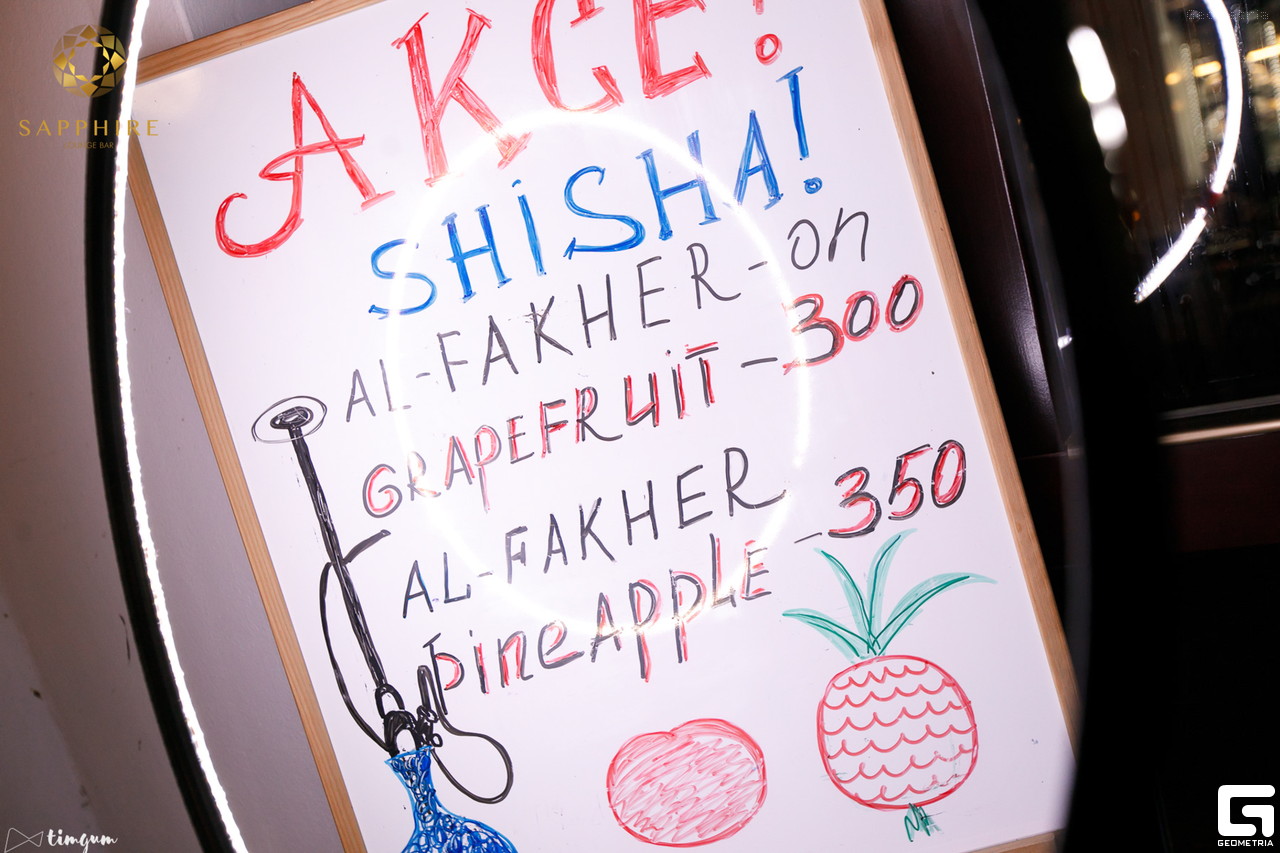 AKCE!
SHiSHA!
AL-FAKHER-on
GRAPEFRUiT-300
AL-FAKHER
pineAPPLE-350
SAPPHIRE
LOUNGE BAR
timgum
GEOMETRIA